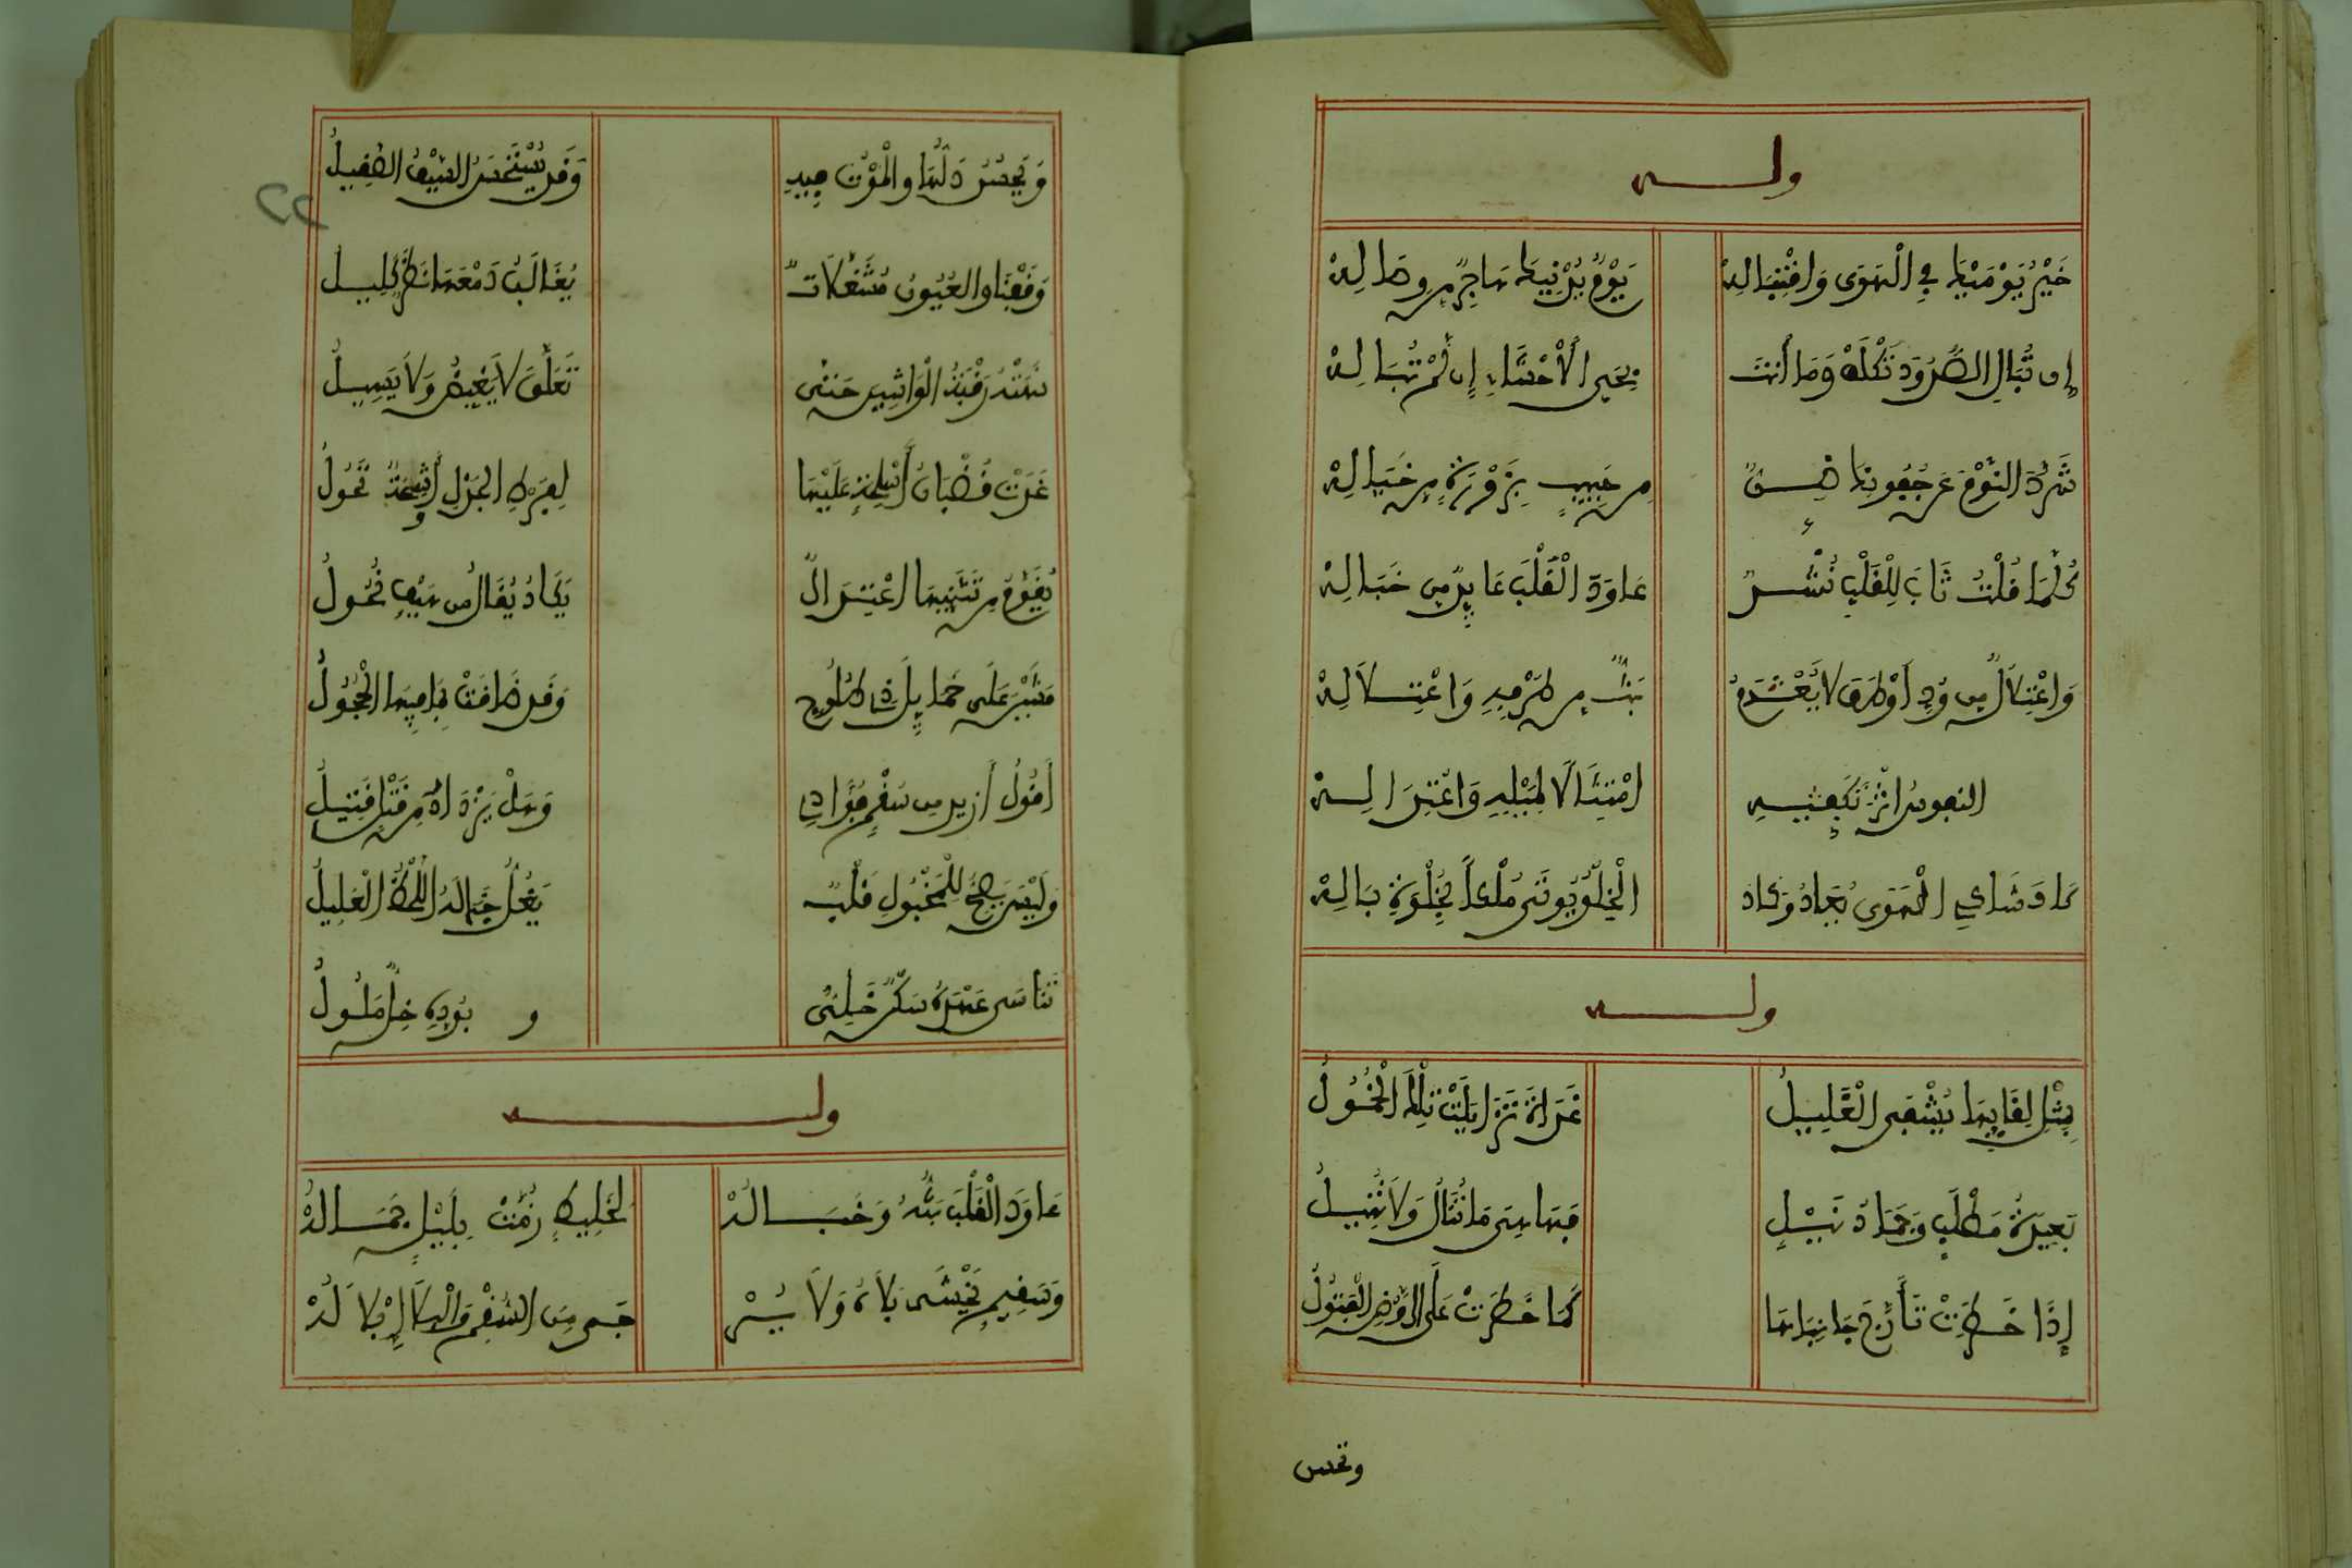 ولـــه
خَيْرُ يَوْمَيْكَ فِي الْهَوَى وَاقْتِبَالِهْ يَوْمُ يُدْنِيكَ هَاجِرٌ مِن وِصَالِهْ
إِن تُبَالِ الصُّدُودَ تَكْلَفْ وَمَا أَنتَ بِحَيِّ الأَحْشَاءِ إِن لَّمْ تُبَالِهْ
شَرَّدَ النَّوْمَ عَن جُفُونِكَ ضِنٌّ مِن حَبِيبٍ بِزَوْرَةٍ مِن خَيَالِهْ
كُلَّمَا قُلْتُ ثَابَ لِلْقَلْبِ رُشْدٌ عَاوَدَ الْقَلْبَ عَائِدٌ مِن خَبَالِهْ
وَاعْتِلَالٌ مِن وُدِّ أَوْطَفَ لَا يُعْدَمُ بَثٌّ مِن طَرْفِهِ وَاعْتِلَالِهْ
النفوس انْ تَكَفِّيهِ امْتِثَالًا لِمَيْلِهِ وَاعْتِدَالِهْ
كَادَ شَاكِي الْهَوَى يُعَادُ وَكَادَ الْخِلْوُ يُوتَى مُلْكاً بِخِلْوَةِ بَالِهْ
ولـــه
مِثْلِ لِقَائِهَا يُشْفَى الْغَلِيلُ غَدَاةَ تَزَايَلَتْ تِلْكَ الْحُمُولُ
بَعِيدَةُ مَطْلَبٍ وَجَمَادُ نَيْلٍ فَهَا هِيَ مَا تُنَالُ وَلَا تُنِيلُ
إِذَا خَطَرَتْ تَأَرَّجَ جَانِبَاهَا كَمَا خَطَرَتْ عَلَى الرَّوْضِ الْقَبُولُ
وتحسن
وَيَحْسُنُ دَلُّهَا وَالْمَوْتُ فِيهِ وَقَد يُسْتَحْسَنُ السَّيْفُ الصَّقِيلُ
وَقَفْنَا وَالعُيُونُ مُشَغَّلَاتٌ يُغَالِبُ دَمْعَهَا نَظَرٌ كَلِيلُ
نَهَتْهُ رِقْبَةُ الْوَاشِينَ حَتَّى تَعَلَّقَ لَا يَغِيضُ وَلَا يَسِيلُ
غَدَتْ قُضْبَانُ أَسْلِحَةٍ عَلَيْهَا لِفَرْطِ الجَدْلِ أَوْشِحَةٌ تَجُولُ
يُقَوِّمُ مِن تَثَنِّيهَا اعْتِدَالٌ يَكَادُ يُقَالُ مِن هَيَفٍ نُحُولُ
مَشَيْنَ عَلَى حَمَائِلَ ذَاتِ طُلُوحٍ وَقَد ضَاقَتْ بِمَا فِيهَا الْحُجُولُ
أَقُولُ أَزِيدُ مِن سُقْمٍ فُؤَادِي وَهَلْ يَزْدَادُ مِن قَتْلٍ قَتِيلُ
وَلَيْسَ يَصِحُّ لِلْمَخْبُولِ قَلْبٌ يَغُلُّ خَبَالَهُ اللَّحْظُ الْعَلِيلُ
تَنَاسَى عَهْدَهُ سَكَنٌ خَلِيٌّ و بوده خِلٌّ مَلُولُ
ولـــه
عَاوَدَ الْقَلْبَ بَثُّهُ وَخَبَالُهْ لِخَلِيطٍ زُمَّتْ بِلَيْلٍ جِمَالُهْ
وَسَقِيمٍ يَخْشَى بَلَاهُ وَلَا يُسْـ